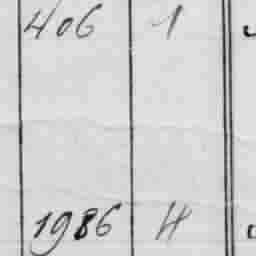 406 1
1986 H